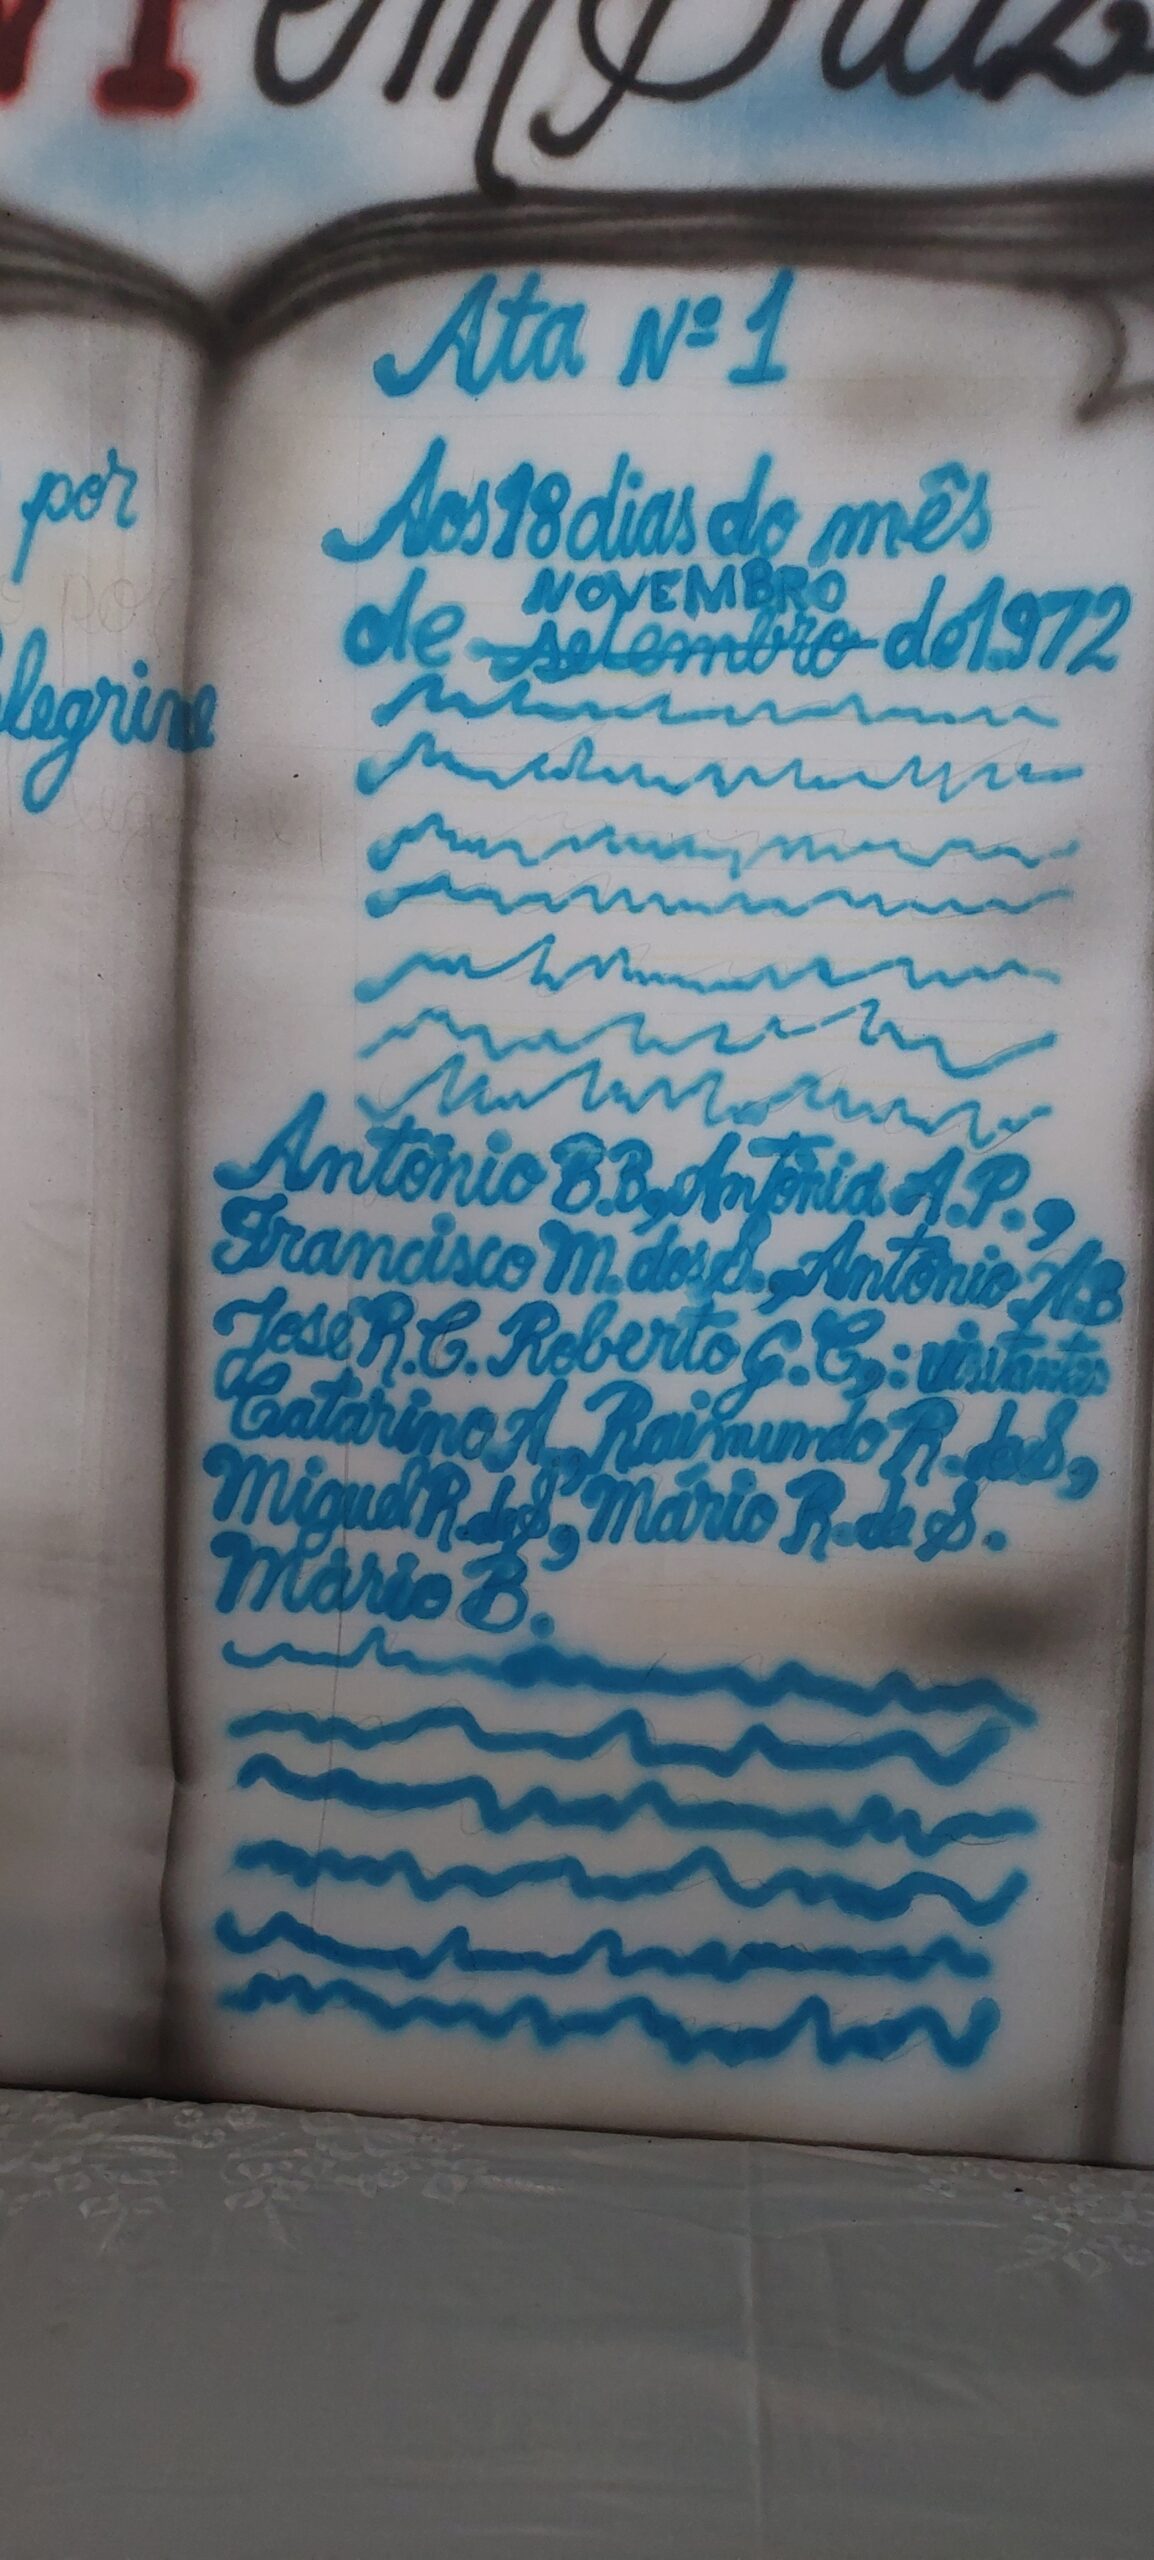 em
por
legrine
Ata Nº 1
Aos 18 dias do mês
NOVEMBRO
de setembro de 1972
Antônio B.B, Antônia A.P.,
Francisco M. dos S., Antônio A.B
José R.C. Roberto G.C,: visitantes
Catarino A., Raimundo R. de S,
Miguel R. de S, Mário R. de S.
Mário B.